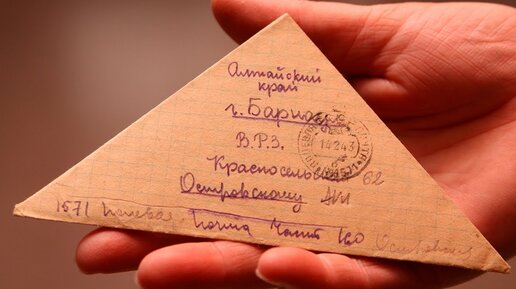 Алтайский
край
г. Барнаул
В.Р.З.
Красносельская 62
Островскому
1571 Полевая почта часть 160
14 2 43